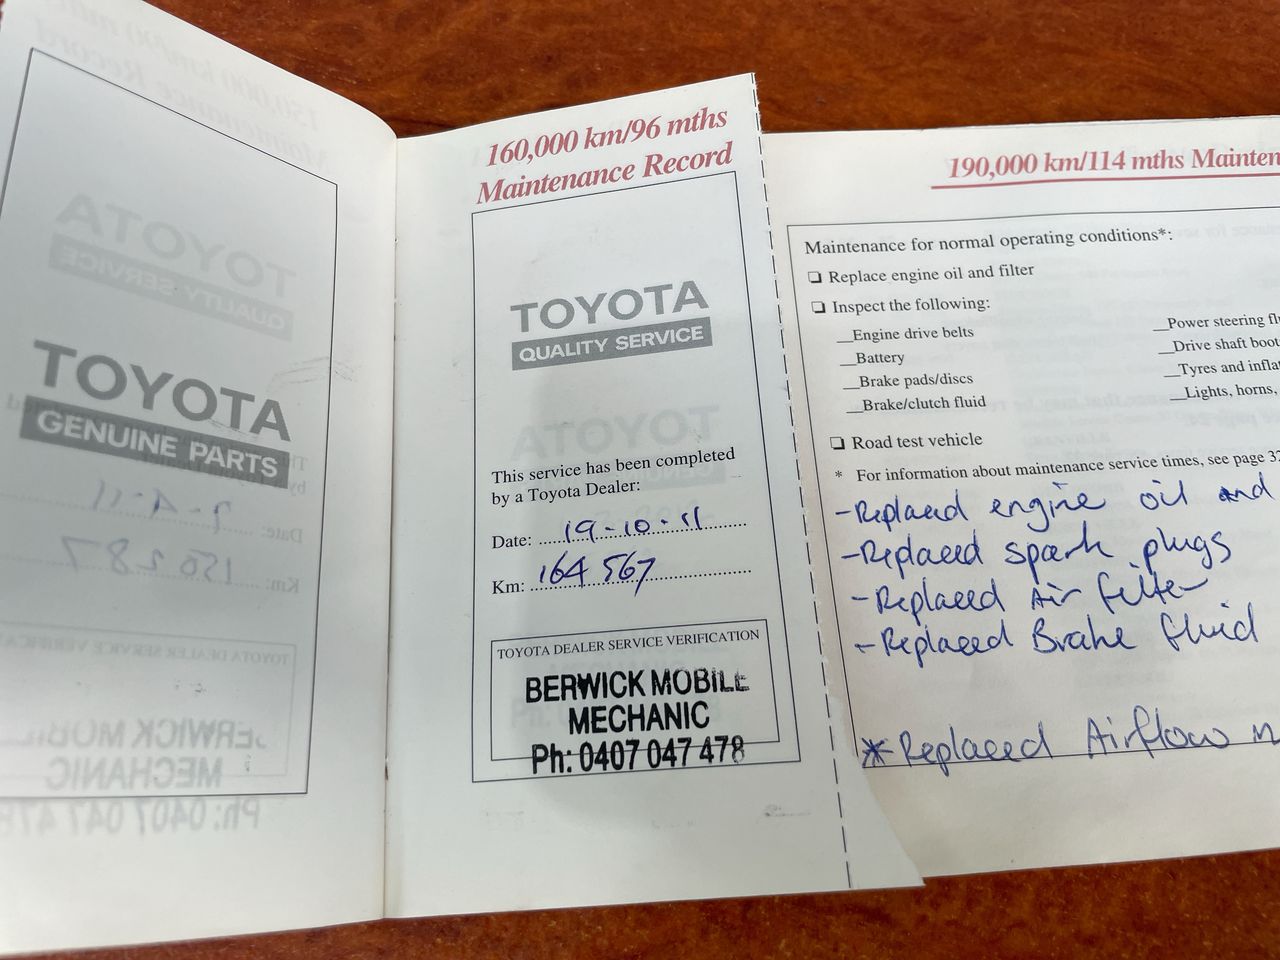 TOYOTA
GENUINE PARTS
160,000 km/96 mths
Maintenance Record
TOYOTA
QUALITY SERVICE
This service has been completed
by a Toyota Dealer:
Date: 19-10-11
Km: 164 567
TOYOTA DEALER SERVICE VERIFICATION
BERWICK MOBILE
MECHANIC
Ph: 0407 047 478
190,000 km/114 mths
Maintenance for normal operating conditions*:
❏ Replace engine oil and filter
❏ Inspect the following:
__Engine drive belts
__Battery
__Brake pads/discs
__Brake/clutch fluid
__Power steering
__Drive shaft
__Tyres and
__Lights, horns,
❏ Road test vehicle
* For information about maintenance service times, see page
-Replaced engine oil and
-Replaced spark plugs
-Replaced Air filter
-Replaced Brake fluid
*Replaced Airflow